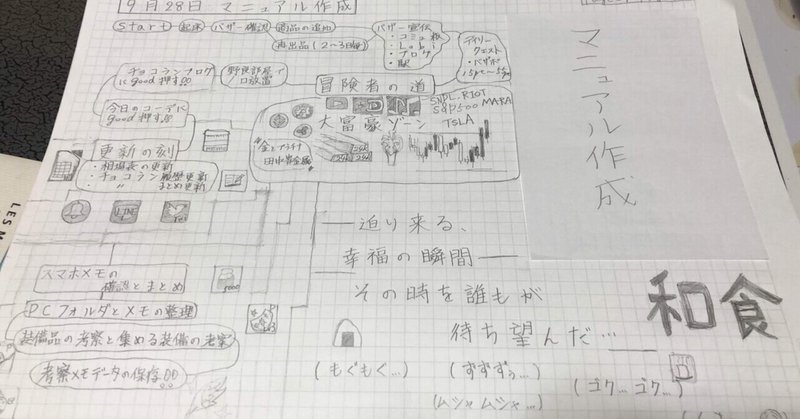 9月28日 マニュアル作成
start
起床
バザー確認
商品の追加
再出品(2~3日毎)
バザー宣伝
・コミュ板
・Lobi
・ブログ
・駅
デイリー
クエスト
・バザポ
チョコランブログ
にgood押す!!
野良部屋で
ソロ放置
今日のコーデに
good押す!!
冒険者の道
SNPL.RIOT
S&P500 MARA
TSLA
大富豪ゾーン
"金とプラチナ
田中貴金属"
更新の刻
・相場表の更新
・チョコラン履歴更新
・ 〃 まとめ更新
LINE
スマホメモの
確認とまとめ
PCフォルダとメモの整理
装備品の考察と集める装備の考察
考察メモデータの保存!!
マニュアル作成
―迫り来る、
幸福の瞬間―
その時を誰もが
待ち望んだ…
和食
(もぐもぐ…)
(ずずずぅ…)
(ムシャムシャ…)
(ゴク…ゴク…)
LES M